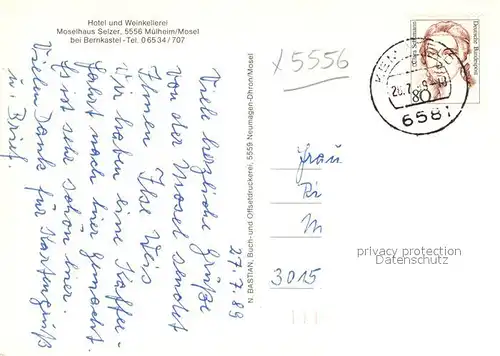 Hotel und Weinkellerei
Moselhaus Selzer, 5556 Mülheim/Mosel
bei Bernkastel - Tel. 0 65 34 / 707
27.7.89
Viele herzliche Grüße
von der Mosel sendet
Ihnen Ilse Weis
Wir haben eine Kaffee-
fahrt nach hier gemacht.
Es ist sehr schön hier.
Vielen Dank für Kartengruß
u. Brief.
N. BASTIAN, Buch- und Offsetdruckerei, 5559 Neumagen-Dhron/Mosel
x 5556
Deutsche Bundespost
80
6581
Frau
Ri
M
3015
privacy protection
Datenschutz